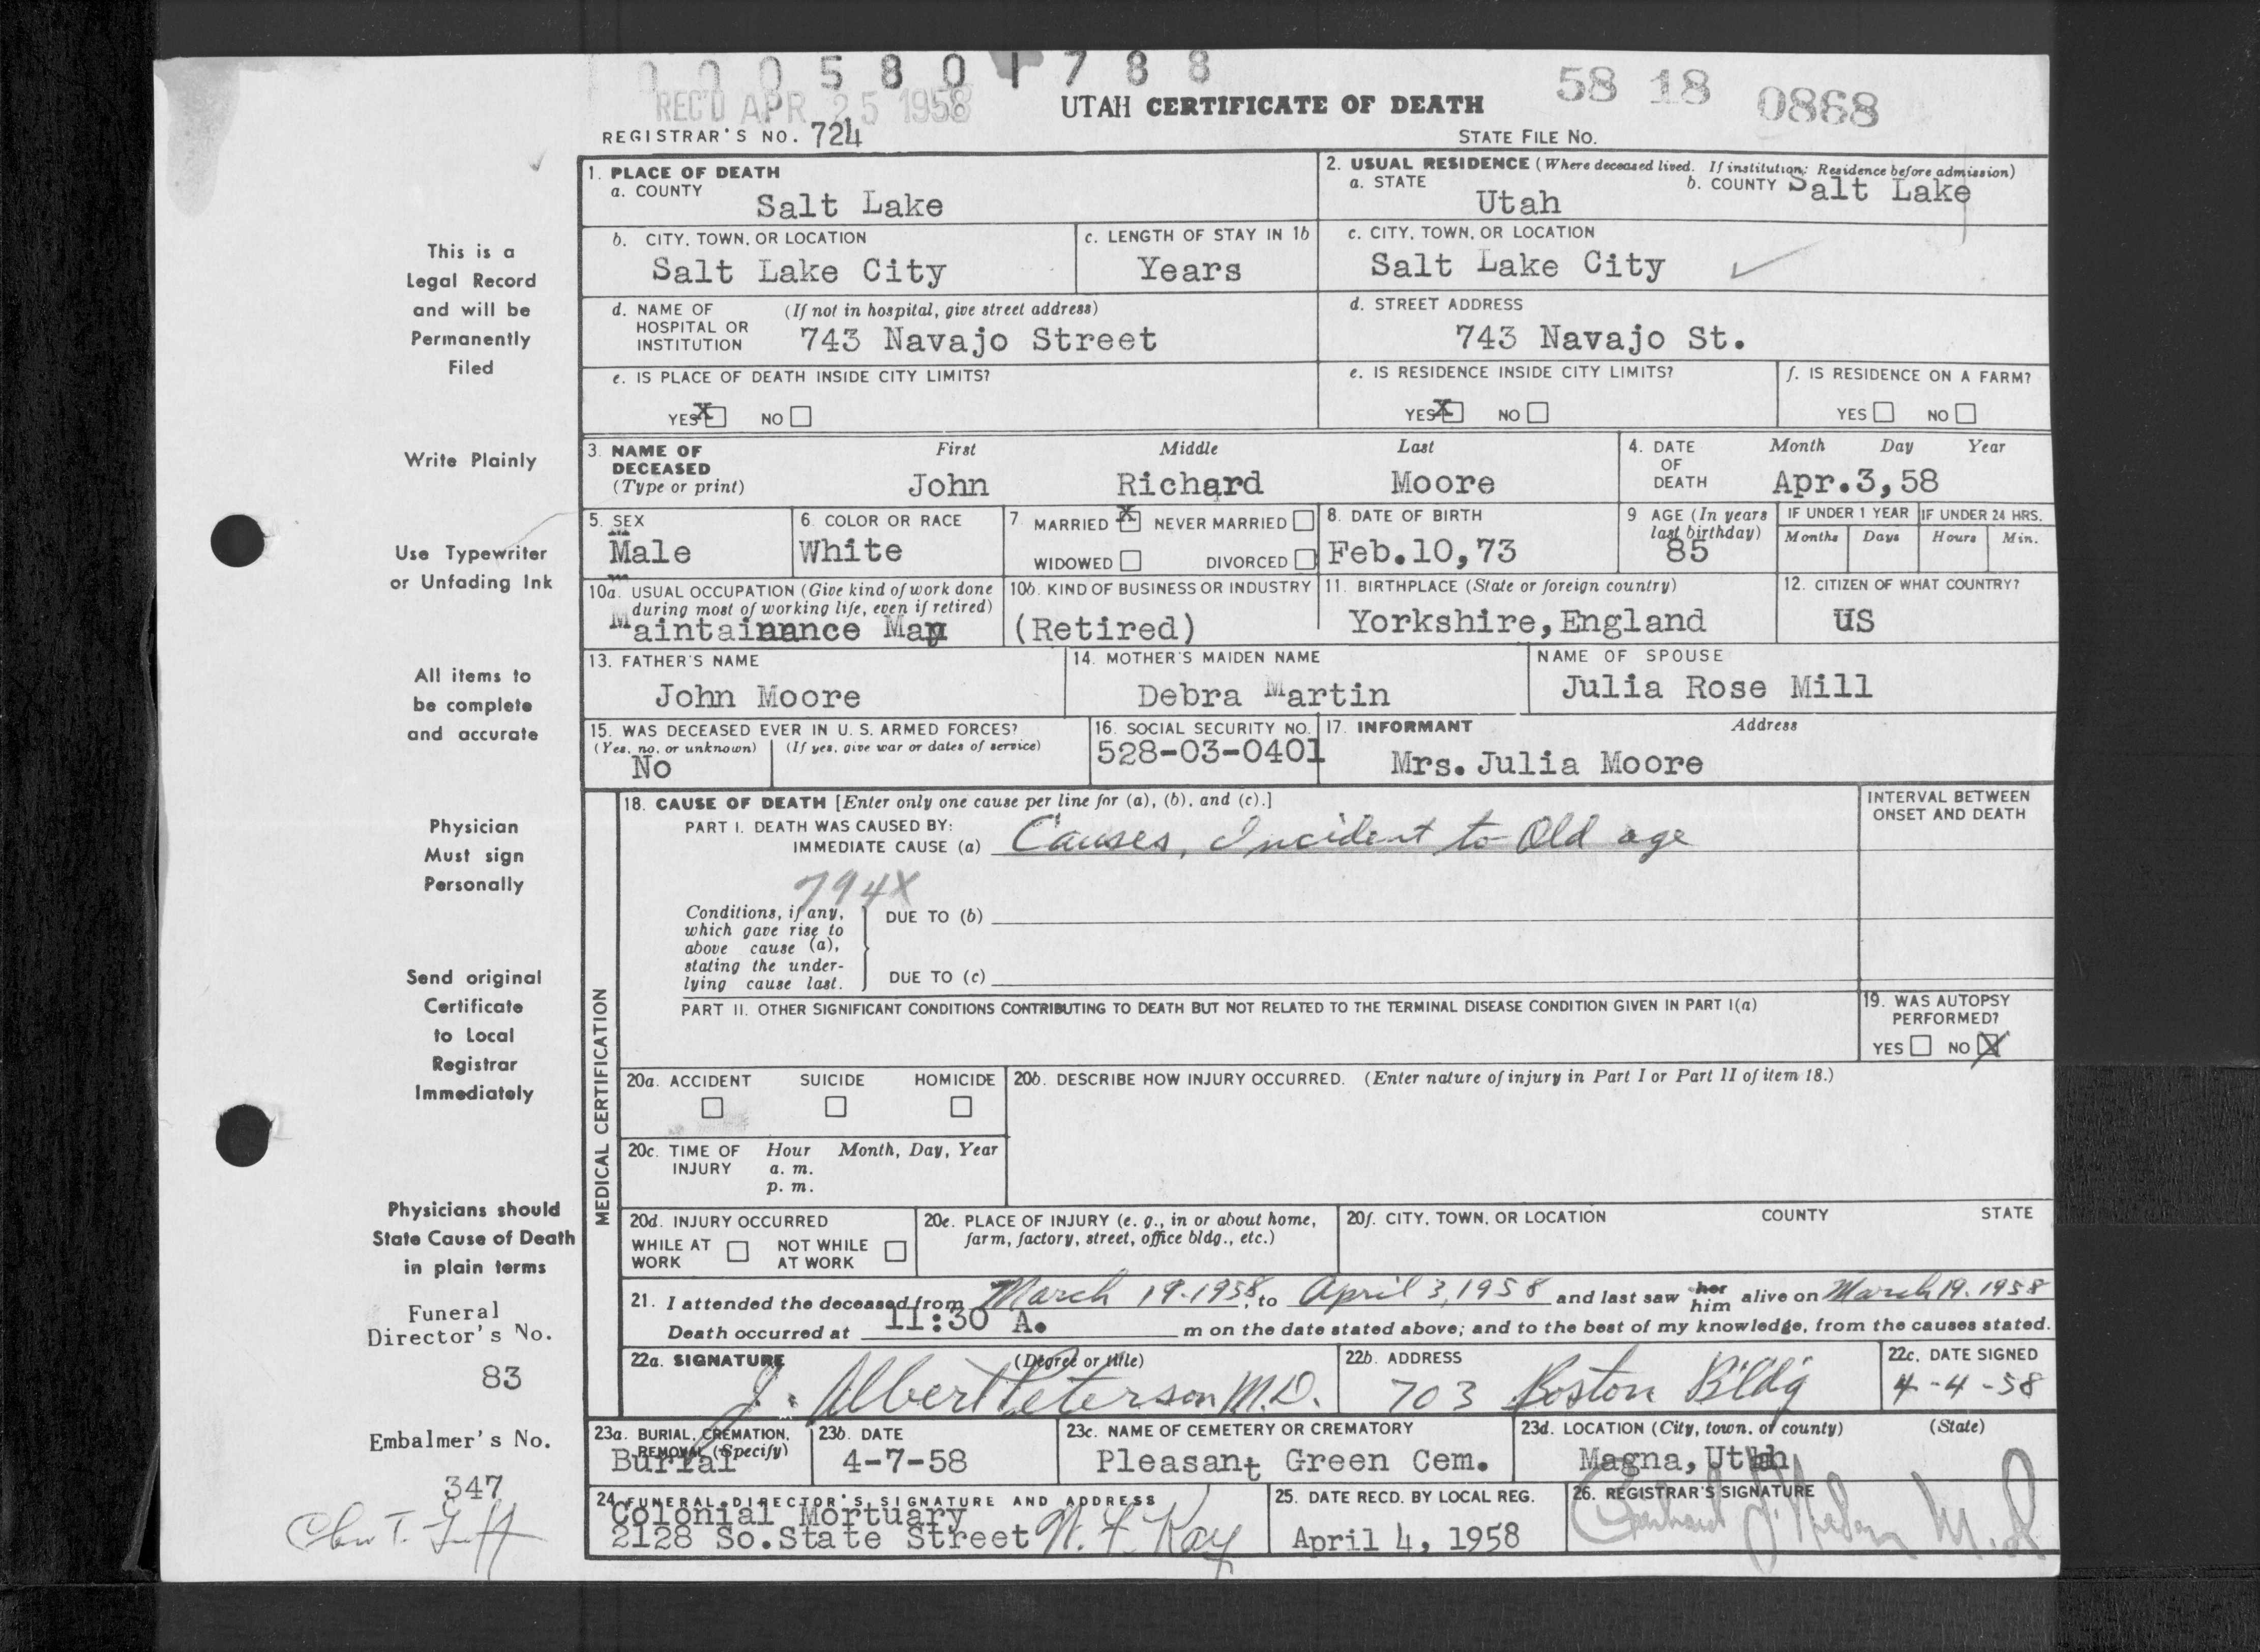 0 0 0 5 8 0 1 7 8 8
REC'D APR 25 1958
UTAH CERTIFICATE OF DEATH
58 18 0868
REGISTRAR'S NO. 724
STATE FILE NO.
1. PLACE OF DEATH
a. COUNTY
Salt Lake
2. USUAL RESIDENCE (Where deceased lived. If institution: Residence before admission)
a. STATE
Utah
b. COUNTY Salt Lake
b. CITY, TOWN, OR LOCATION
Salt Lake City
c. LENGTH OF STAY IN 1b
Years
c. CITY, TOWN, OR LOCATION
Salt Lake City
d. NAME OF HOSPITAL OR INSTITUTION
(If not in hospital, give street address)
743 Navajo Street
d. STREET ADDRESS
743 Navajo St.
e. IS PLACE OF DEATH INSIDE CITY LIMITS?
YES X NO
e. IS RESIDENCE INSIDE CITY LIMITS?
YES X NO
f. IS RESIDENCE ON A FARM?
YES NO
3. NAME OF DECEASED
(Type or print)
First Middle Last
John Richard Moore
4. DATE OF DEATH
Month Day Year
Apr.3,58
5. SEX
Male
6. COLOR OR RACE
White
7. MARRIED X NEVER MARRIED
WIDOWED DIVORCED
8. DATE OF BIRTH
Feb.10,73
9 AGE (In years last birthday)
85
IF UNDER 1 YEAR
Months Days
IF UNDER 24 HRS.
Hours Min.
10a. USUAL OCCUPATION (Give kind of work done during most of working life, even if retired)
Maintainance Man
10b. KIND OF BUSINESS OR INDUSTRY
(Retired)
11. BIRTHPLACE (State or foreign country)
Yorkshire,England
12. CITIZEN OF WHAT COUNTRY?
US
13. FATHER'S NAME
John Moore
14. MOTHER'S MAIDEN NAME
Debra Martin
NAME OF SPOUSE
Julia Rose Mill
15. WAS DECEASED EVER IN U. S. ARMED FORCES?
(Yes, no, or unknown) (If yes, give war or dates of service)
No
16. SOCIAL SECURITY NO.
528-03-0401
17. INFORMANT Address
Mrs. Julia Moore
MEDICAL CERTIFICATION
18. CAUSE OF DEATH [Enter only one cause per line for (a), (b), and (c).]
PART I. DEATH WAS CAUSED BY:
IMMEDIATE CAUSE (a) Causes, Incident to Old age
INTERVAL BETWEEN ONSET AND DEATH
794X
Conditions, if any, which gave rise to above cause (a), stating the underlying cause last.
DUE TO (b)
DUE TO (c)
PART II. OTHER SIGNIFICANT CONDITIONS CONTRIBUTING TO DEATH BUT NOT RELATED TO THE TERMINAL DISEASE CONDITION GIVEN IN PART I(a)
19. WAS AUTOPSY PERFORMED?
YES NO X
20a. ACCIDENT SUICIDE HOMICIDE
20b. DESCRIBE HOW INJURY OCCURRED. (Enter nature of injury in Part I or Part II of item 18.)
20c. TIME OF INJURY
Hour Month, Day, Year
a. m.
p. m.
20d. INJURY OCCURRED
WHILE AT WORK NOT WHILE AT WORK
20e. PLACE OF INJURY (e. g., in or about home, farm, factory, street, office bldg., etc.)
20f. CITY, TOWN, OR LOCATION COUNTY STATE
21. I attended the deceased from March 19-1958, to April 3, 1958 and last saw her him alive on March 19. 1958
Death occurred at 11:30 A. m on the date stated above; and to the best of my knowledge, from the causes stated.
22a. SIGNATURE (Degree or title)
J. Albert Peterson M.D.
22b. ADDRESS
703 Boston Bldg
22c. DATE SIGNED
4-4-58
23a. BURIAL, CREMATION, REMOVAL (Specify)
Burial
23b. DATE
4-7-58
23c. NAME OF CEMETERY OR CREMATORY
Pleasant Green Cem.
23d. LOCATION (City, town, or county) (State)
Magna, Utah
24 FUNERAL DIRECTOR'S SIGNATURE AND ADDRESS
Colonial Mortuary
2128 So.State Street
25. DATE RECD. BY LOCAL REG.
April 4, 1958
26. REGISTRAR'S SIGNATURE
M.D
This is a
Legal Record
and will be
Permanently
Filed
Write Plainly
Use Typewriter
or Unfading Ink
All items to
be complete
and accurate
Physician
Must sign
Personally
Send original
Certificate
to Local
Registrar
Immediately
Physicians should
State Cause of Death
in plain terms
Funeral
Director's No.
83
Embalmer's No.
347